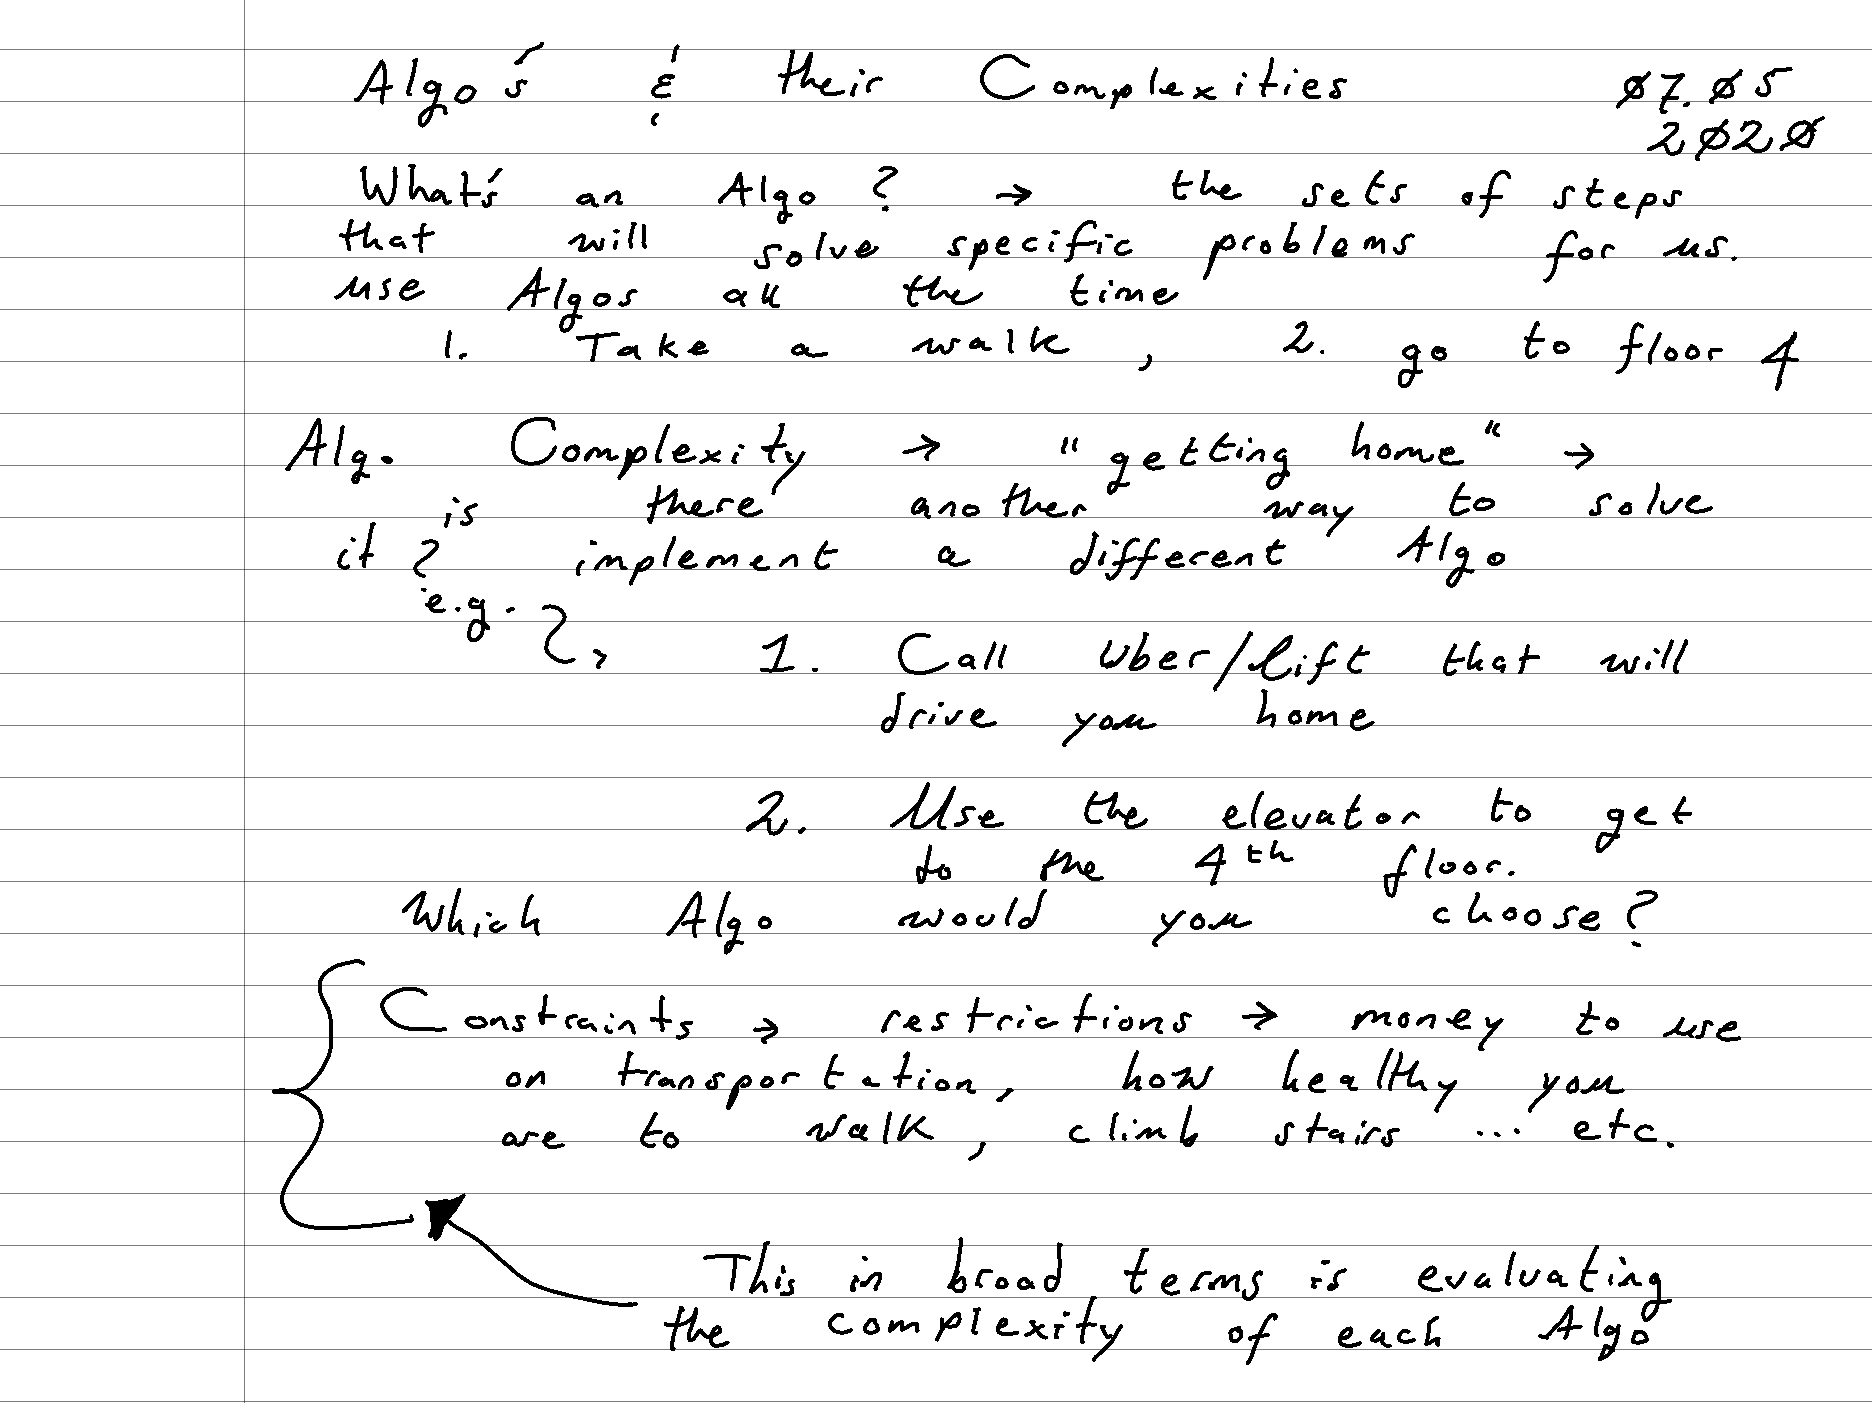 Algo's & their Complexities 07.05
2020
What's an Algo? → the sets of steps
that will solve specific problems for us.
use Algos all the time
1. Take a walk, 2. go to floor 4
Alg. Complexity → "getting home" →
is there another way to solve
it? implement a different Algo
e.g.
1. Call Uber/lift that will
drive you home
2. Use the elevator to get
to the 4th floor.
Which Algo would you choose?
Constraints → restrictions → money to use
on transportation, how healthy you
are to walk, climb stairs ... etc.
This in broad terms is evaluating
the complexity of each Algo